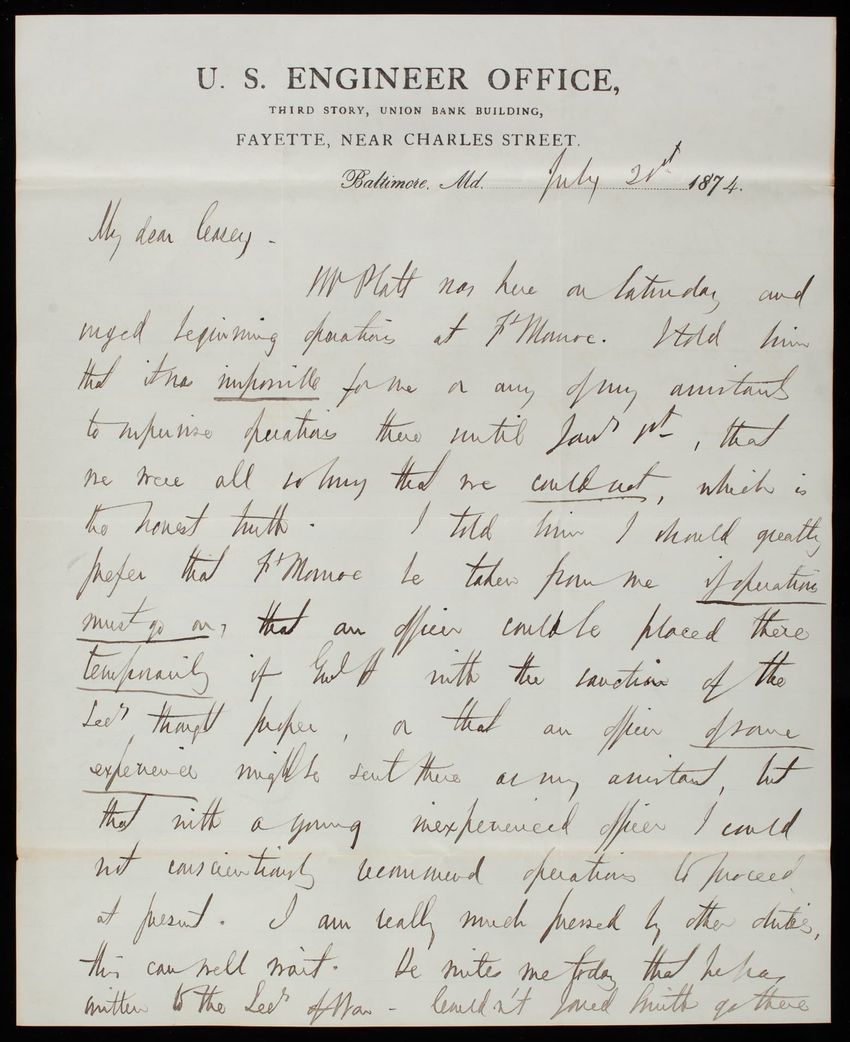 U. S. ENGINEER OFFICE,
THIRD STORY, UNION BANK BUILDING,
FAYETTE, NEAR CHARLES STREET.
Baltimore, Md. July 21st 1874.
My dear Casey -
Mr Platt was here on Saturday and
urged beginning operations at Ft Monroe. I told him
that it was impossible for me or any of my assistants
to supervise operations there until Jany 1st, that
we were all so busy that we could not, which is
the honest truth. I told him I should greatly
prefer that Ft Monroe be taken from me if operations
must go on, that an officer could be placed there
temporarily if Genl H with the sanction of the
Secy thought proper, or that an officer of some
experience might be sent there as my assistant, but
that with a young inexperienced officer I could
not conscientiously recommend operations to proceed
at present. I am really much pressed by other duties,
this can well wait. He writes me today that he has
written to the Secy of War - Couldn't Jared Smith go there